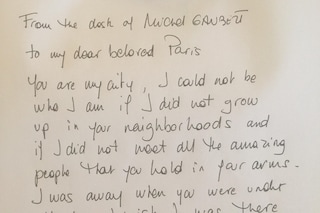 From the desk of MICHEL GAUBERT
to my dear beloved Paris
You are my city, I could not be
who I am if I did not grow
up in your neighborhoods and
if I did not meet all the amazing
people that you hold in your arms -
I was away when you were under
I was there